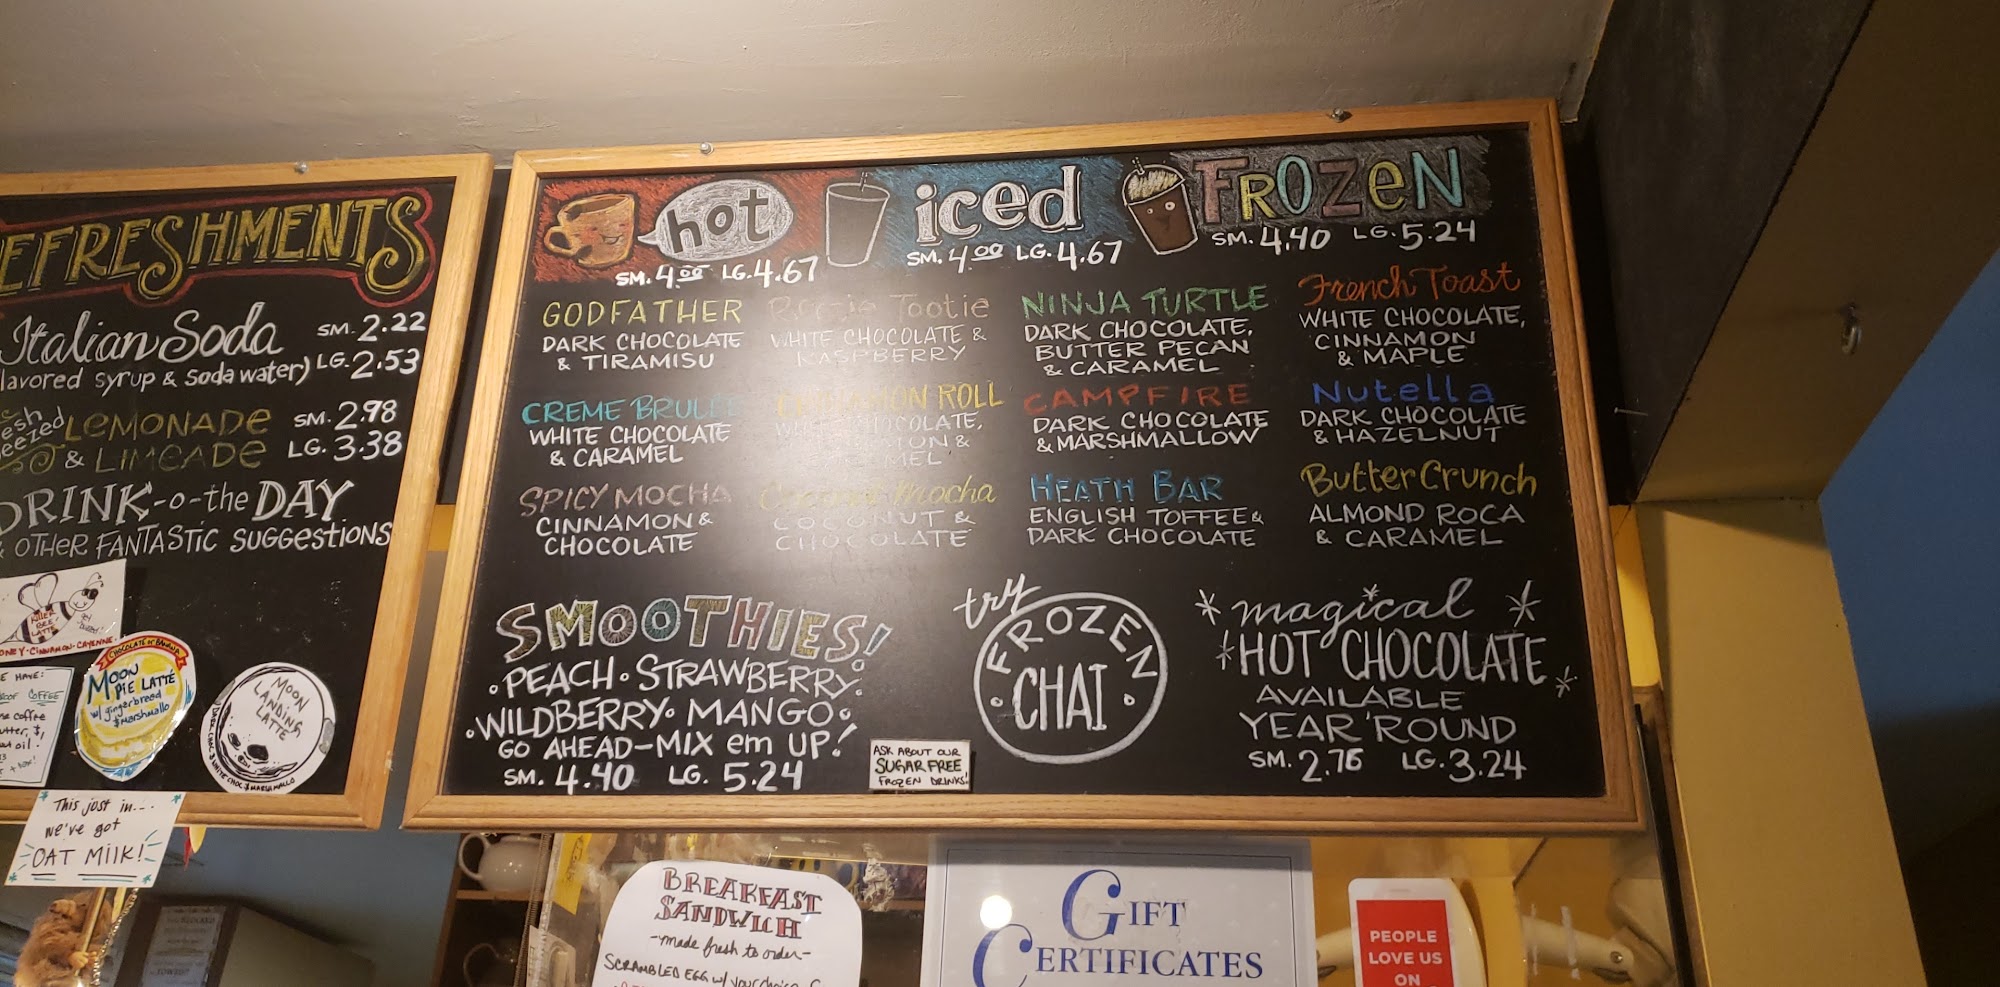 EFRESHMENTS
Italian Soda SM. 2.22
lavored syrup & soda water) LG. 2.53
esh
eezed
LEMONADE SM. 2.98
& LIMEADE LG. 3.38
DRINK-o-the DAY
& OTHER FANTASTIC SUGGESTIONS
KILLER
BEE
LATTE
ONEY-CINNAMON-CAYENNE
CHOCOLATE & BANANA
MOON
PIE LATTE
w/ gingerbread
& marshmallo
MOON
LANDING
LATTE
DARK CHOC & WHITE CHOC & MARSHMALLO
E HAVE:
OOF COFFEE
coffee
utter,
oil.
This just in...
we've got
OAT MILK!
hot
SM. 4.00 LG. 4.67
iced
SM. 4.00 LG. 4.67
FROZEN
SM. 4.40 LG. 5.24
GODFATHER
DARK CHOCOLATE
& TIRAMISU
Tootie
WHITE CHOCOLATE &
RASPBERRY
NINJA TURTLE
DARK CHOCOLATE,
BUTTER PECAN
& CARAMEL
French Toast
WHITE CHOCOLATE,
CINNAMON
& MAPLE
CREME BRULEE
WHITE CHOCOLATE
& CARAMEL
CINNAMON ROLL
WHITE CHOCOLATE,
CINNAMON &
CARAMEL
CAMPFIRE
DARK CHOCOLATE
& MARSHMALLOW
Nutella
DARK CHOCOLATE
& HAZELNUT
SPICY MOCHA
CINNAMON &
CHOCOLATE
Coconut Mocha
COCONUT &
CHOCOLATE
HEATH BAR
ENGLISH TOFFEE &
DARK CHOCOLATE
Butter Crunch
ALMOND ROCA
& CARAMEL
SMOOTHIES!
• PEACH • STRAWBERRY •
• WILDBERRY • MANGO •
GO AHEAD-MIX em UP!
SM. 4.40 LG. 5.24
ASK ABOUT OUR
SUGAR FREE
FROZEN DRINKS!
try
FROZEN
• CHAI •
magical
HOT CHOCOLATE
AVAILABLE
YEAR 'ROUND
SM. 2.76 LG. 3.24
BREAKFAST
SANDWICH
-made fresh to order-
SCRAMBLED EGG w/ your choice
GIFT
CERTIFICATES
PEOPLE
LOVE US
ON